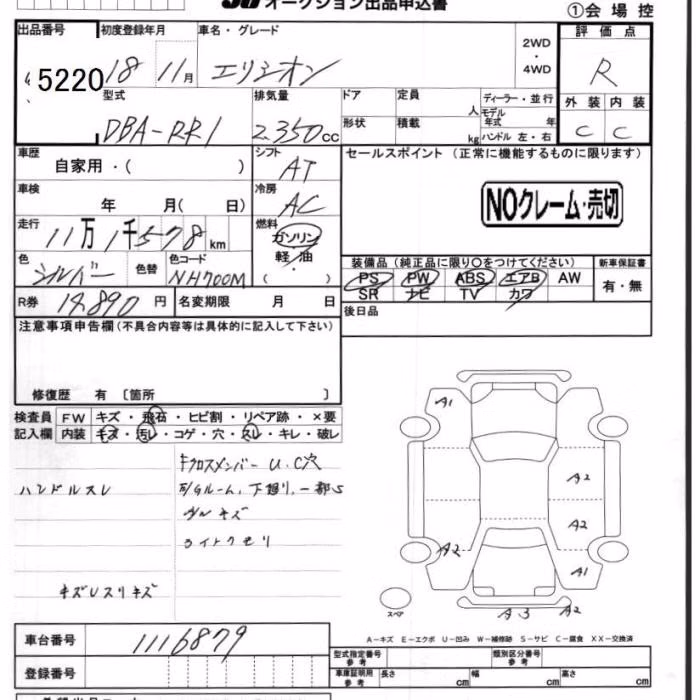 オークション出品申込書
①会場控
出品番号 初度登録年月 車名・グレード 2WD・4WD 評価点
5220 18 11月 エリシオン R
型式 排気量 ドア 定員 人 ディーラー・並行 外装 内装
DBA-RR1 2350cc 形状 積載 kg モデル年式 年 ハンドル 左・右 C C
車歴 自家用・( ) シフト AT
セールスポイント (正常に機能するものに限ります)
車検 年 月( 日) 冷房 AC
NOクレーム・売切
走行 11万1千578km 燃料 ガソリン 軽油 ( )
色 シルバー 色替 色コード NH700M
装備品(純正品に限り○をつけてください) 新車保証書
PS PW ABS エアB AW 有・無
SR ナビ TV カワ
R券 14,890円 名変期限 月 日
後日品
注意事項申告欄(不具合内容等は具体的に記入して下さい)
修復歴 有 〔箇所 〕
検査員 FW キズ・飛石・ヒビ割・リペア跡・×要
記入欄 内装 キズ・汚レ・コゲ・穴・スレ・キレ・破レ
クロスメンバー U.C穴
ハンドルスレ
ルーム、下廻り、一部S
キズ
キズ
A1
A2
A2
A2
A1
A3 A2
スペア
A-キズ E-エクボ U-凹み W-補修跡 S-サビ C-腐食 XX-交換済
車台番号 1116879
型式指定番号 参考 類別区分番号 参考
登録番号
車庫証明用 参考 長さ cm 幅 cm 高さ cm